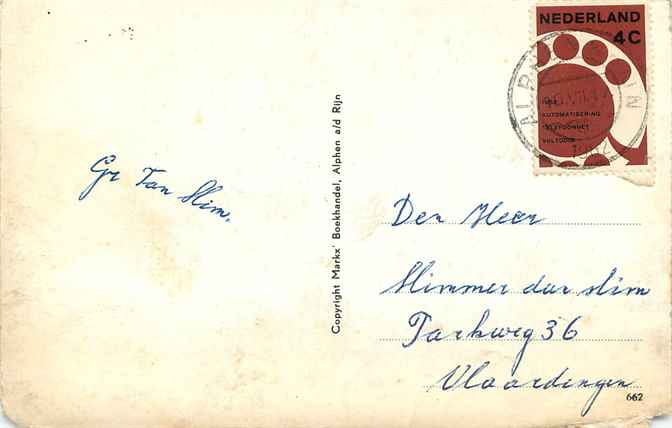 NEDERLAND
4C
AUTOMATISERING
TELEFOONNET
VOLTOOID
1962
Gr Jan Slim.
Copyright Markx' Boekhandel, Alphen a/d Rijn
Den Heer
Slimmer dan slim
Parkweg 36
Vlaardingen
662